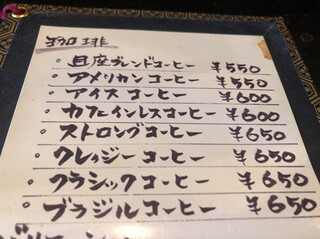 珈琲
・自家ブレンドコーヒー ¥550
・アメリカンコーヒー ¥550
・アイスコーヒー ¥600
・カフェインレスコーヒー ¥600
・ストロングコーヒー ¥650
・クレイジーコーヒー ¥650
・クラシックコーヒー ¥650
・ブラジルコーヒー ¥650